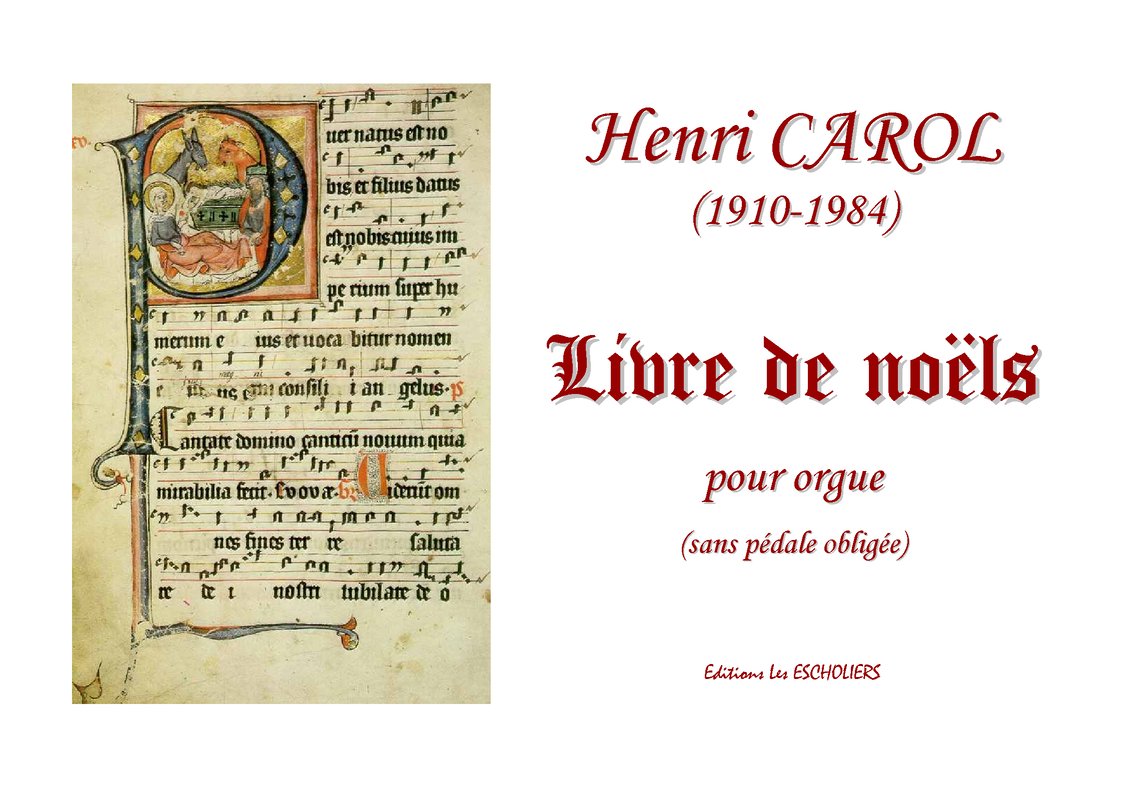 uer natus est no
bis et filius datus
est nobis cuius im
pe rium super hu
merum e ius et uoca bitur nomen
e ius consili i an gelus. p
Cantate domino canticū nouum quia
mirabilia fecit. Euouæ. Uiderūt om
nes fines ter re saluta
re de i nostri iubilate de o
Henri CAROL
(1910-1984)
Livre de noëls
pour orgue
(sans pédale obligée)
Editions Les ESCHOLIERS